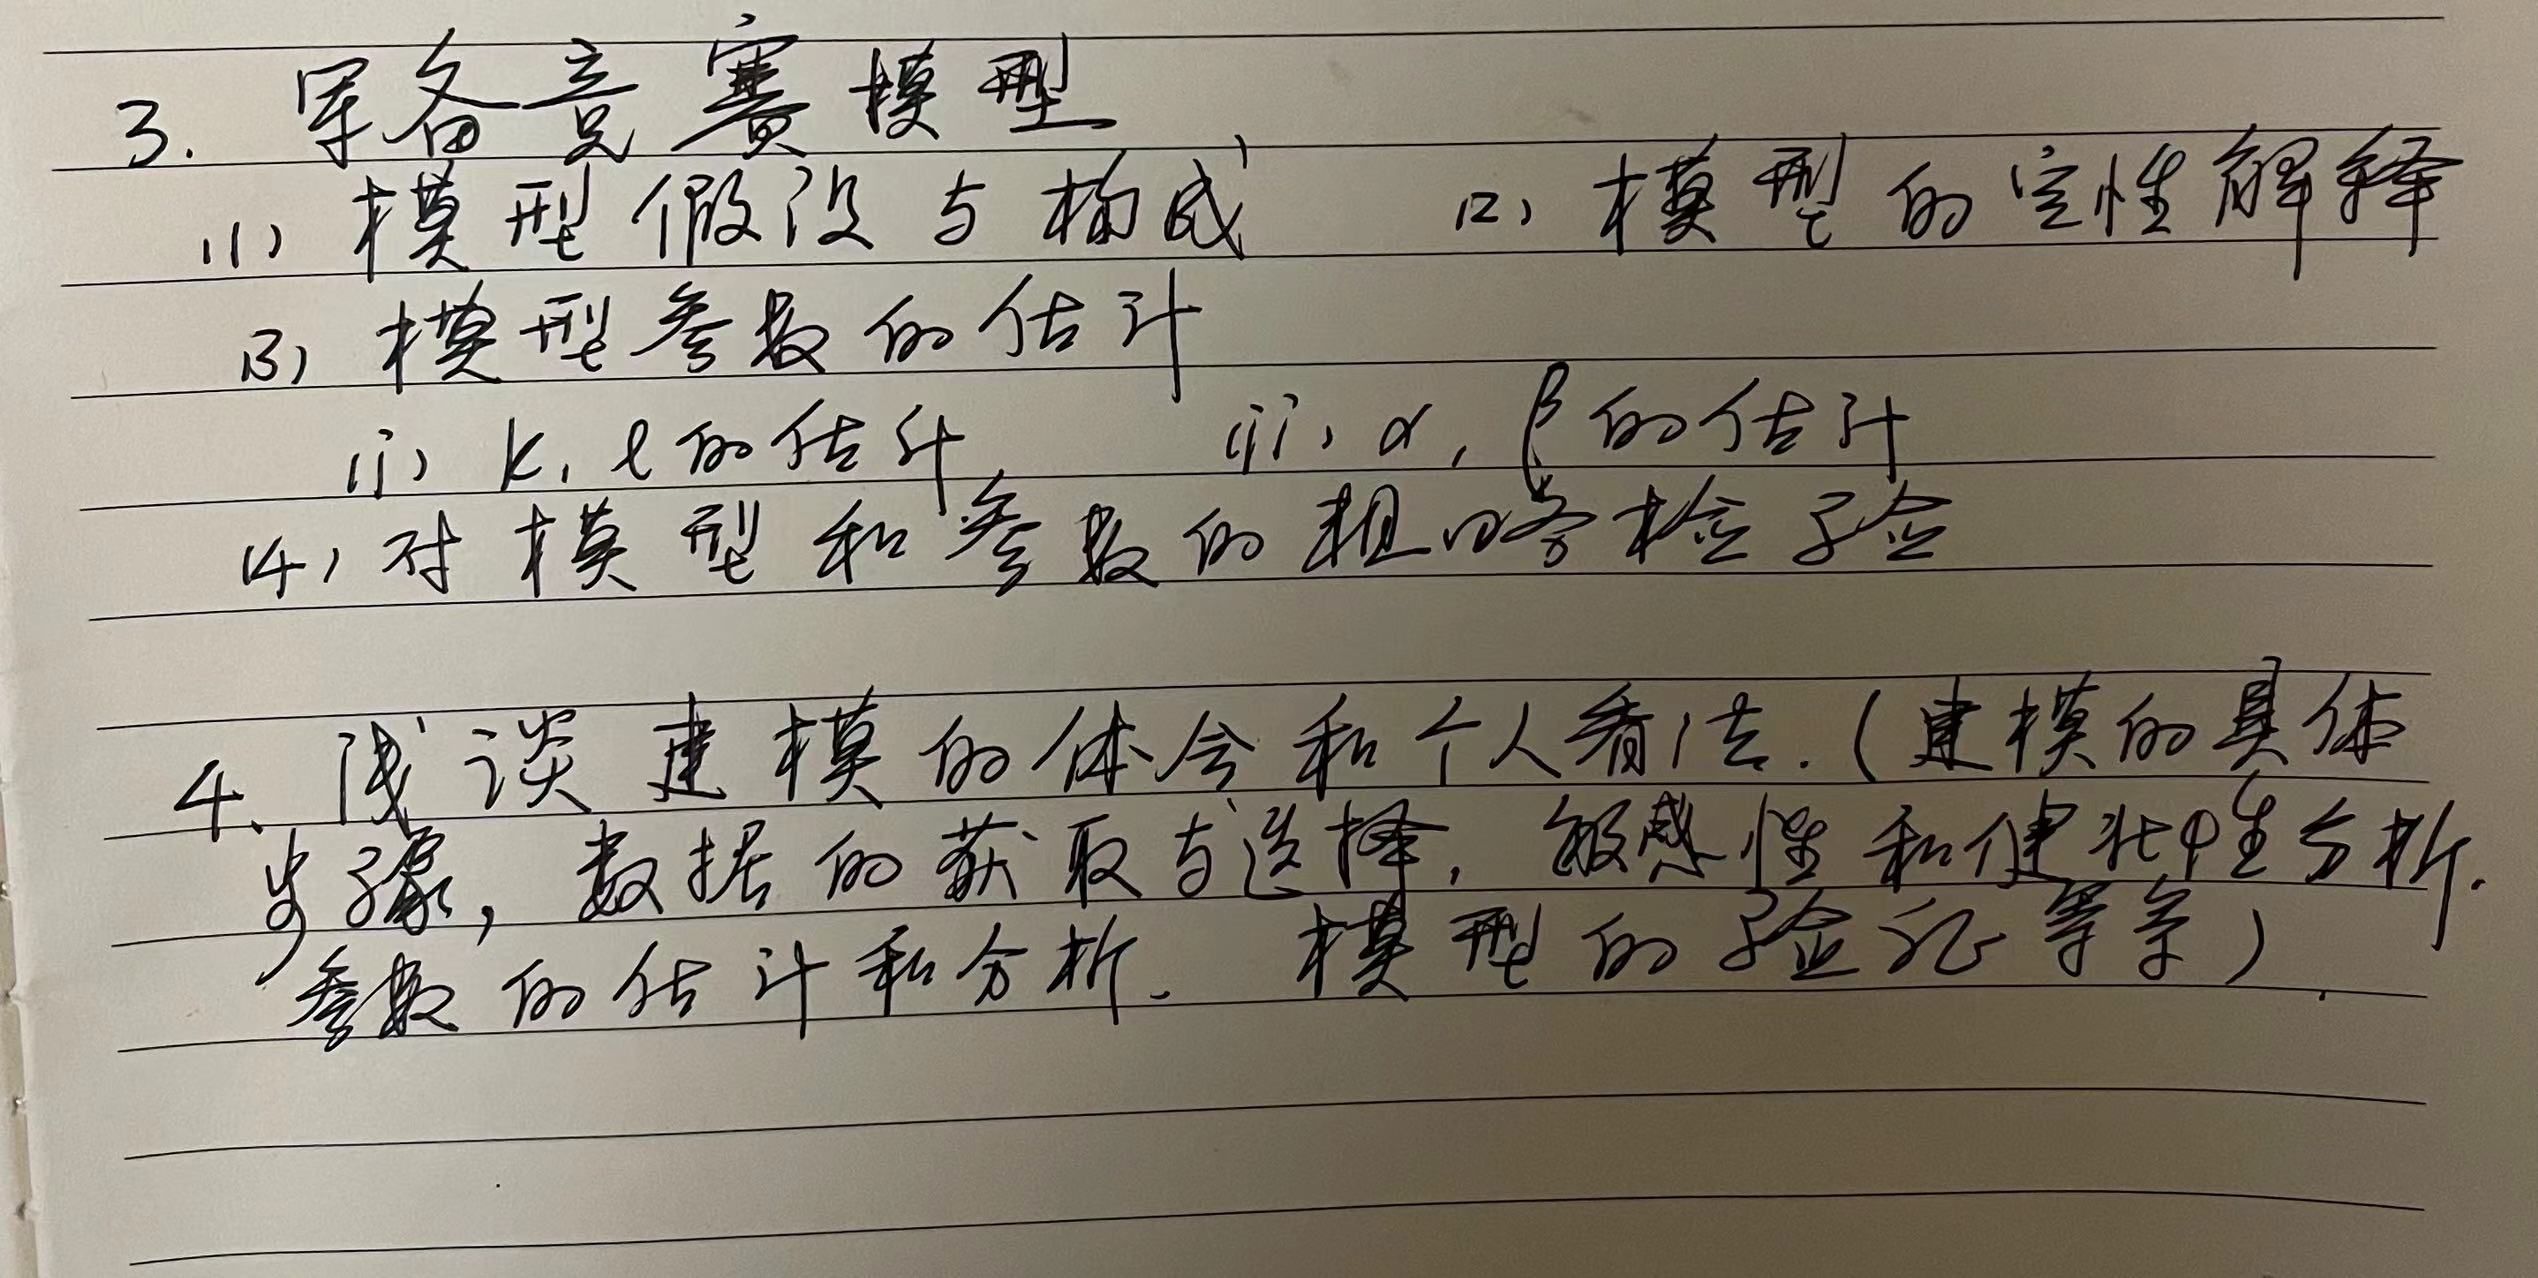 3. 军备竞赛模型
(1) 模型假设与构成 (2) 模型的定性解释
(3) 模型参数的估计
(i) k, l的估计 (ii) α, β的估计
(4) 对模型和参数的粗略检验
4. 浅谈建模的体会和个人看法. (建模的具体
步骤, 数据的获取与选择, 敏感性和健壮性分析.
参数的估计和分析. 模型的验证等等).